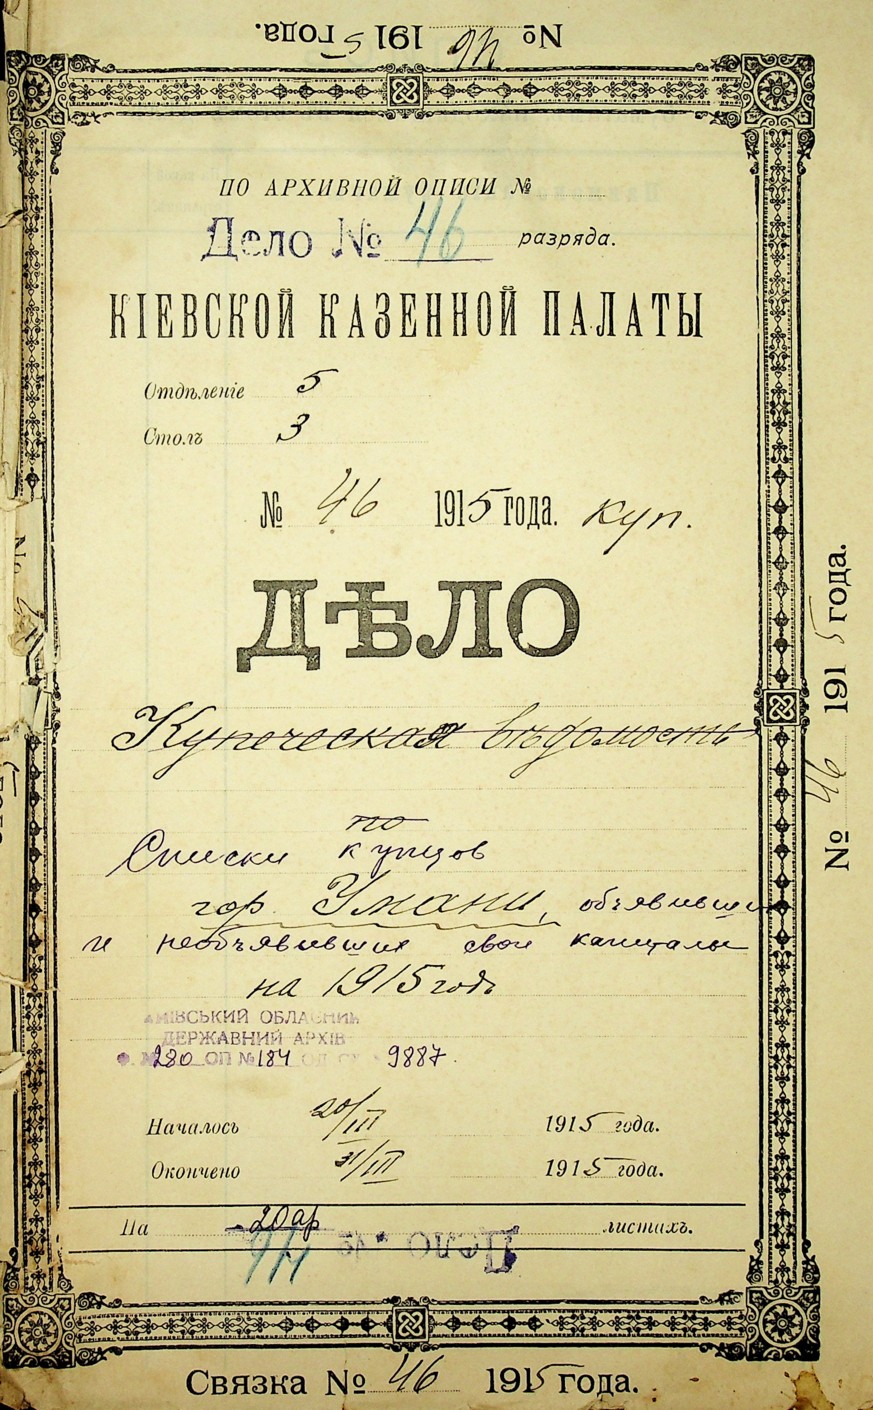 № 46 1915 года.
ПО АРХИВНОЙ ОПИСИ №
Дело № 46 разряда.
КІЕВСКОЙ КАЗЕННОЙ ПАЛАТЫ
Отдѣленіе 5
Столъ 3
№ 46 1915 года. куп.
ДѢЛО
Купеческая вѣдомость
по
Списки купцов
гор. Умани, объявивших
и необъявивших свои капиталы
на 1915 годъ
КИЇВСЬКИЙ ОБЛАСНИЙ
ДЕРЖАВНИЙ АРХІВ
Ф. № 280 ОП № 184 ОД. 9887
Началось 20/III 1915 года.
Окончено 31/III 1915 года.
На 20 ар листахъ.
Дело № 46
Связка № 46 1915 года.
№ 46 1915 года.